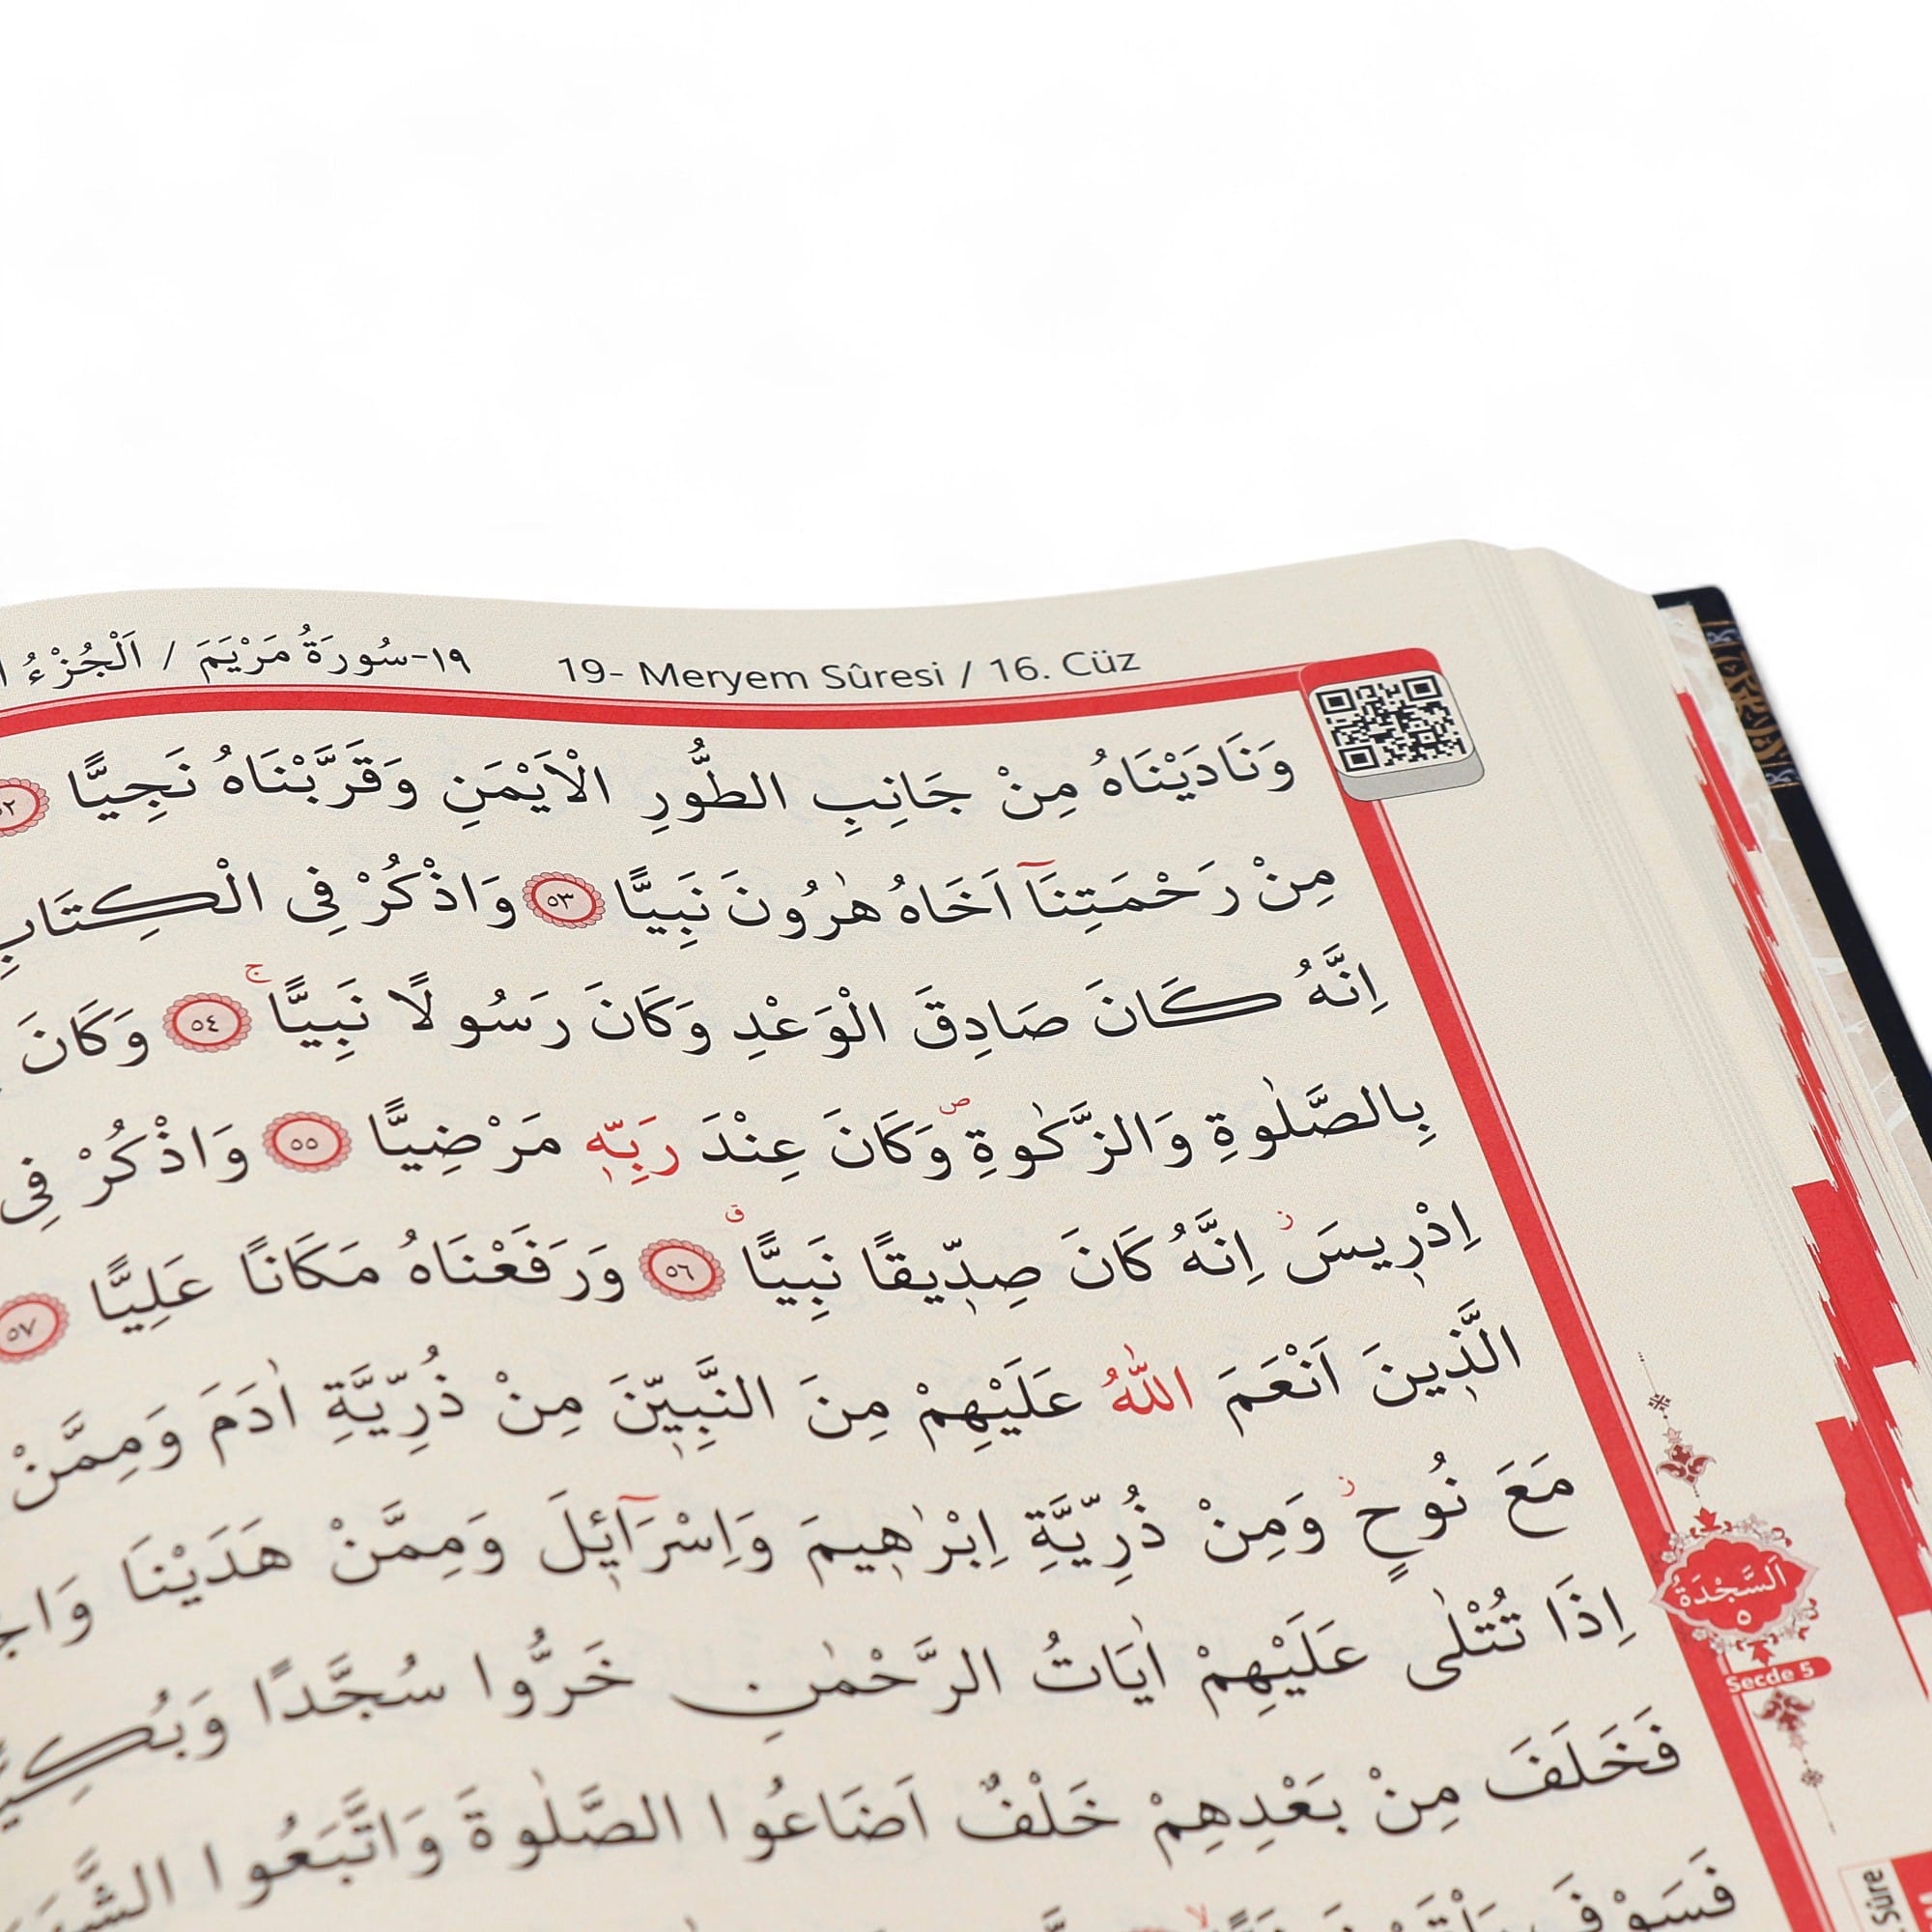 ١٩-سُورَةُ مَرْيَمَ / اَلْجُزْءُ
19- Meryem Sûresi / 16. Cüz
وَنَادَيْنَاهُ مِنْ جَانِبِ الطُّورِ الْاَيْمَنِ وَقَرَّبْنَاهُ نَجِيًّا ٥٢
مِنْ رَحْمَتِنَٓا اَخَاهُ هٰرُونَ نَبِيًّا ٥٣ وَاذْكُرْ فِى الْكِتَابِ
اِنَّهُ كَانَ صَادِقَ الْوَعْدِ وَكَانَ رَسُولًا نَبِيًّاۚ ٥٤ وَكَانَ
بِالصَّلٰوةِ وَالزَّكٰوةِۖ وَكَانَ عِنْدَ رَبِّهٖ مَرْضِيًّا ٥٥ وَاذْكُرْ فِى
اِدْرٖيسَؗ اِنَّهُ كَانَ صِدّٖيقًا نَبِيًّاࣗ ٥٦ وَرَفَعْنَاهُ مَكَانًا عَلِيًّا ٥٧
الَّذٖينَ اَنْعَمَ اللّٰهُ عَلَيْهِمْ مِنَ النَّبِيّٖنَ مِنْ ذُرِّيَّةِ اٰدَمَ وَمِمَّنْ
مَعَ نُوحٍؗ وَمِنْ ذُرِّيَّةِ اِبْرٰهٖيمَ وَاِسْرَٓائٖلَ وَمِمَّنْ هَدَيْنَا
اِذَا تُتْلٰى عَلَيْهِمْ اٰيَاتُ الرَّحْمٰنِ خَرُّوا سُجَّدًا
اَلسَّجْدَةُ
٥
Secde 5
فَخَلَفَ مِنْ بَعْدِهِمْ خَلْفٌ اَضَاعُوا الصَّلٰوةَ وَاتَّبَعُوا
فَسَوْفَ
Sûre